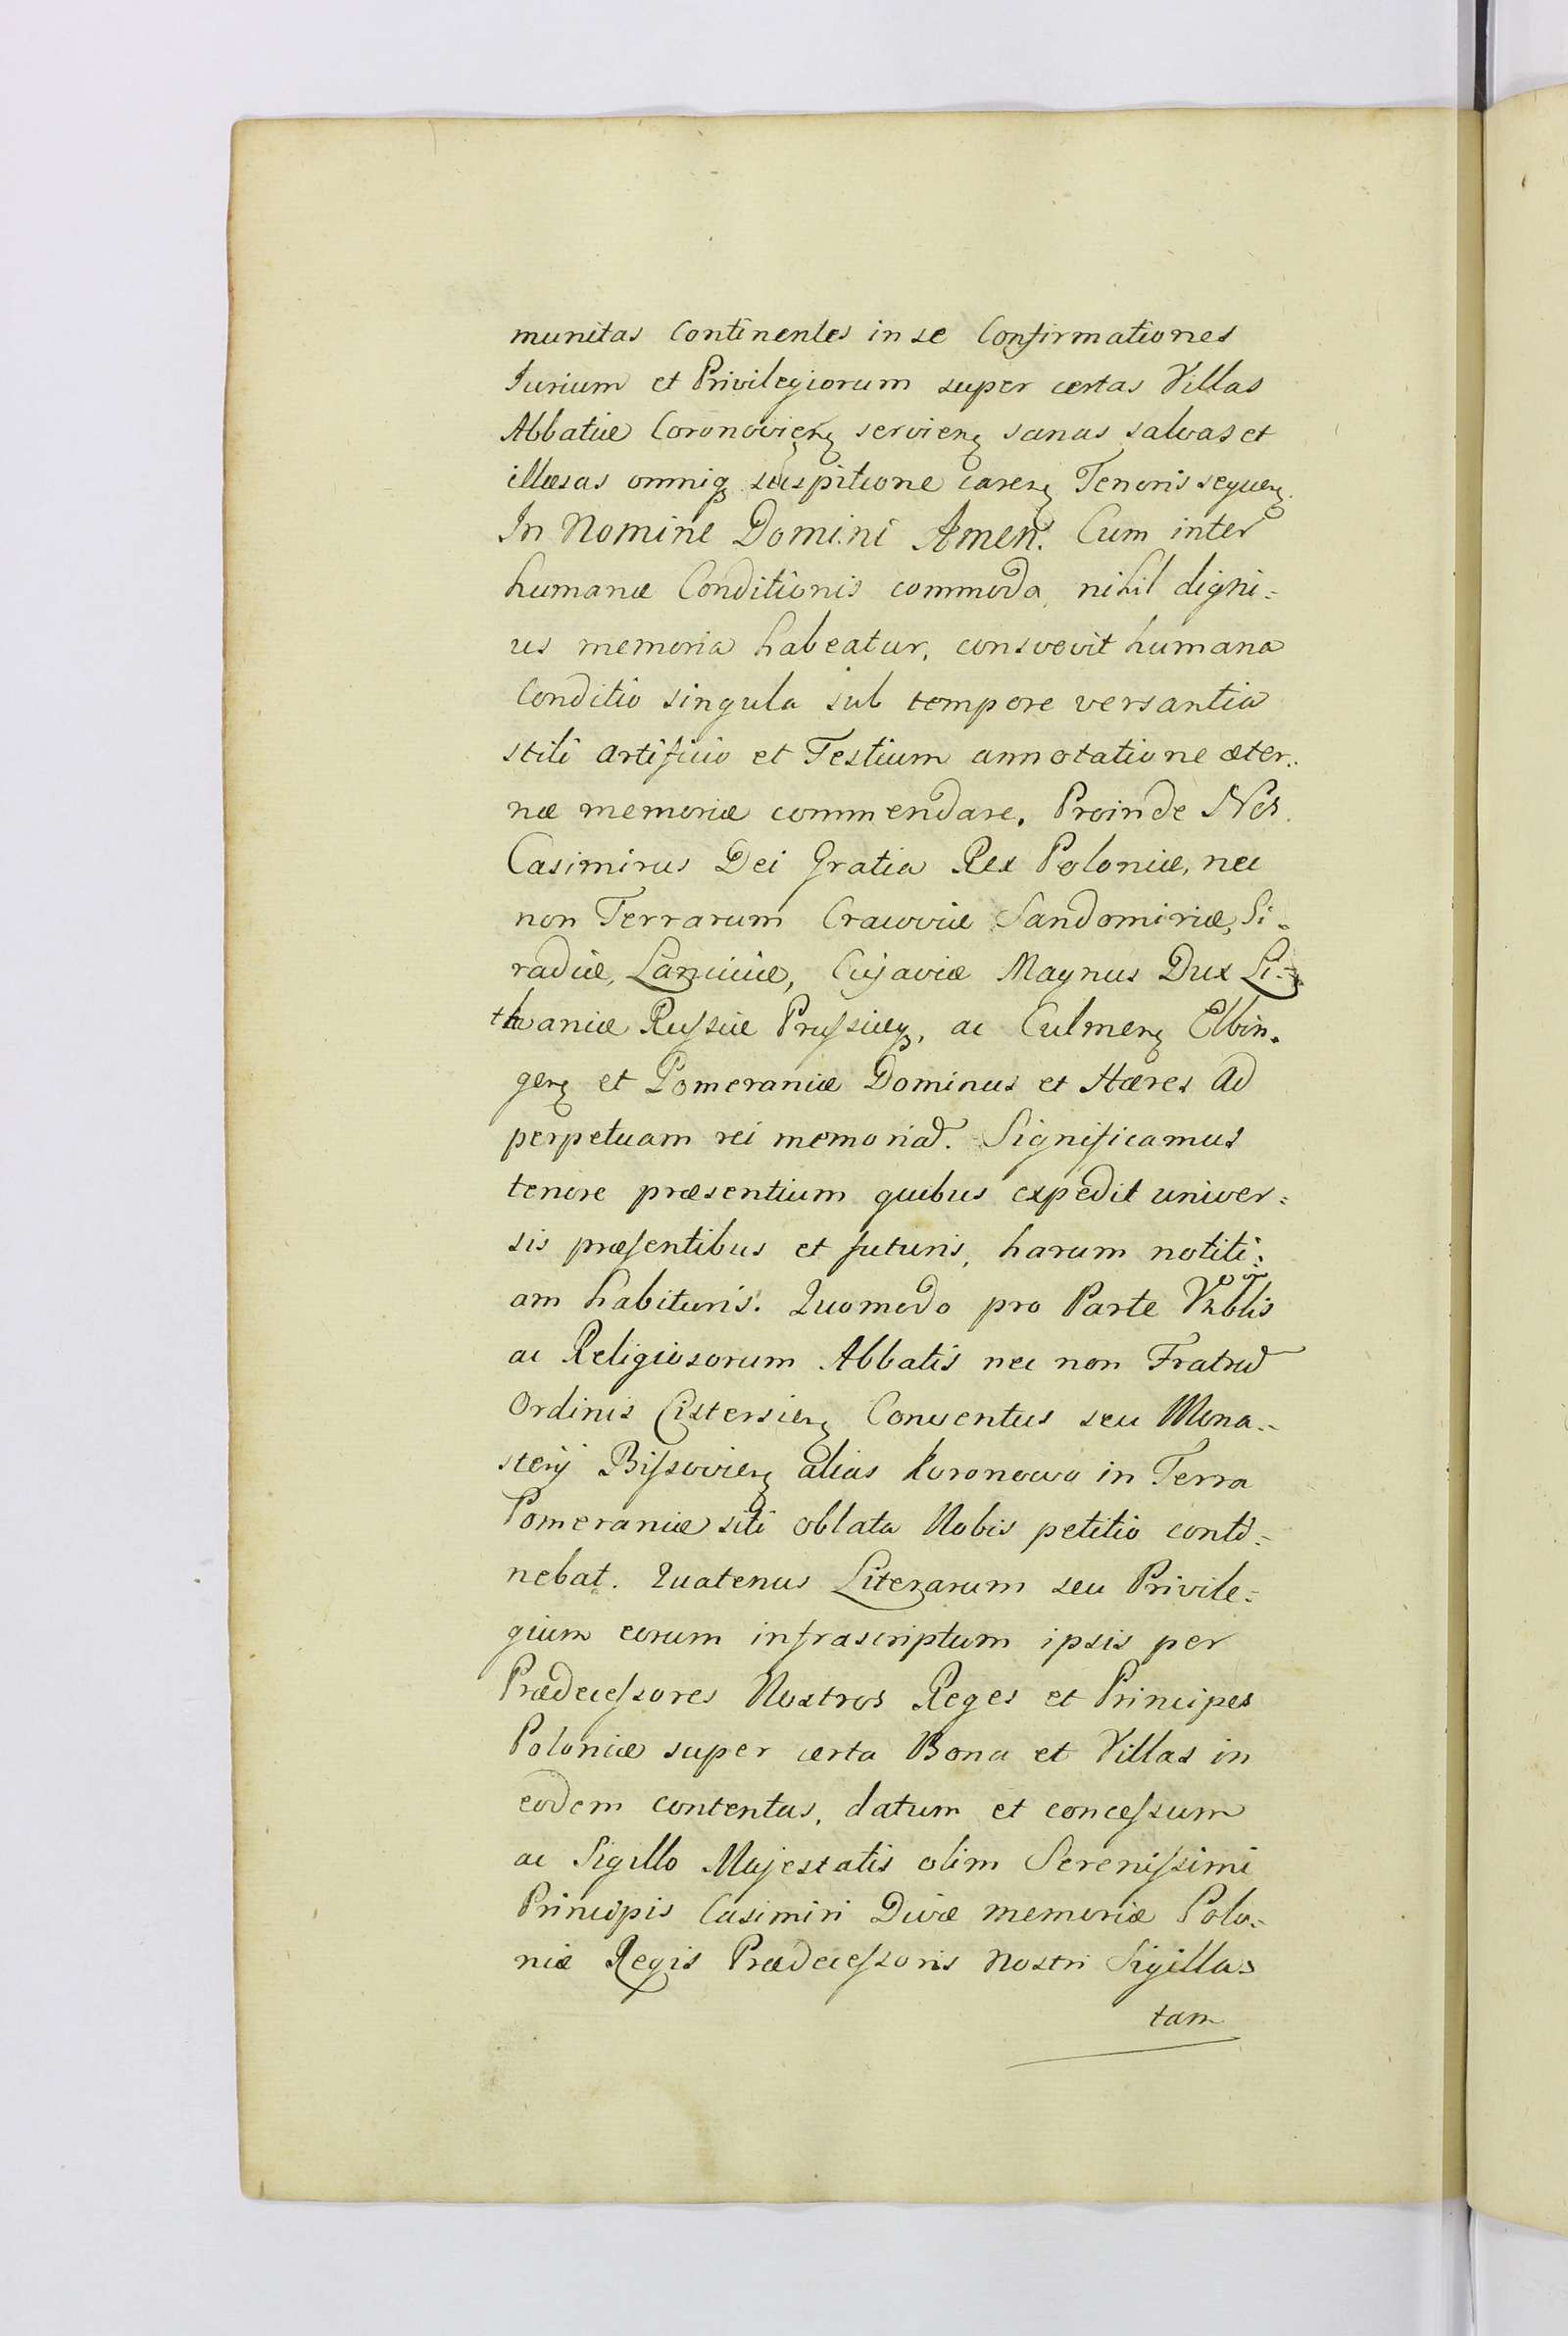 munitas Continentes in se Confirmationes
Iurium et Privilegiorum super certas Villas
Abbatiæ Coronovien servien sanas salvas et
illæsas omniq suspitione caren Tenoris sequen.
In Nomine Domini Amen. Cum inter
humanæ Conditionis commoda, nihil digni=
us memoria habeatur, consvevit humana
Conditio singula sub tempore versantia
stili artificio et Testium annotatione æter=
næ memoriæ commendare. Proinde Nos
Casimirus Dei Gratia Rex Poloniæ, nec
non Terrarum Cracoviæ Sandomiriæ, Si=
radiæ, Lanciciæ, Cujaviæ Magnus Dux Li=
thvaniæ Russiæ Prussiæq, ac Culmen Elbin=
gen et Pomeraniæ Dominus et Hæres Ad
perpetuam rei memoriã. Significamus
tenore præsentium quibus expedit univer=
sis præsentibus et futuris, harum notiti=
am habituris. Quomodo pro Parte Vnblis
ac Religiosorum Abbatis nec non Fratrũ
Ordinis Cistersien Conventus seu Mona=
sterij Bissovien alias Koronowo in Terra
Pomeraniæ siti oblata Nobis petitio conti=
nebat. Quatenus Literarum seu Privile=
gium eorum infrascriptum ipsis per
Prædecessores Nostros Reges et Principes
Poloniæ super certa Bona et Villas in
eodem contentas, datum et concessum
ac Sigillo Majestatis olim Serenissimi
Principis Casimiri Divæ memoriæ Polo=
niæ Regis Prædecessoris Nostri Sigilla=
tam